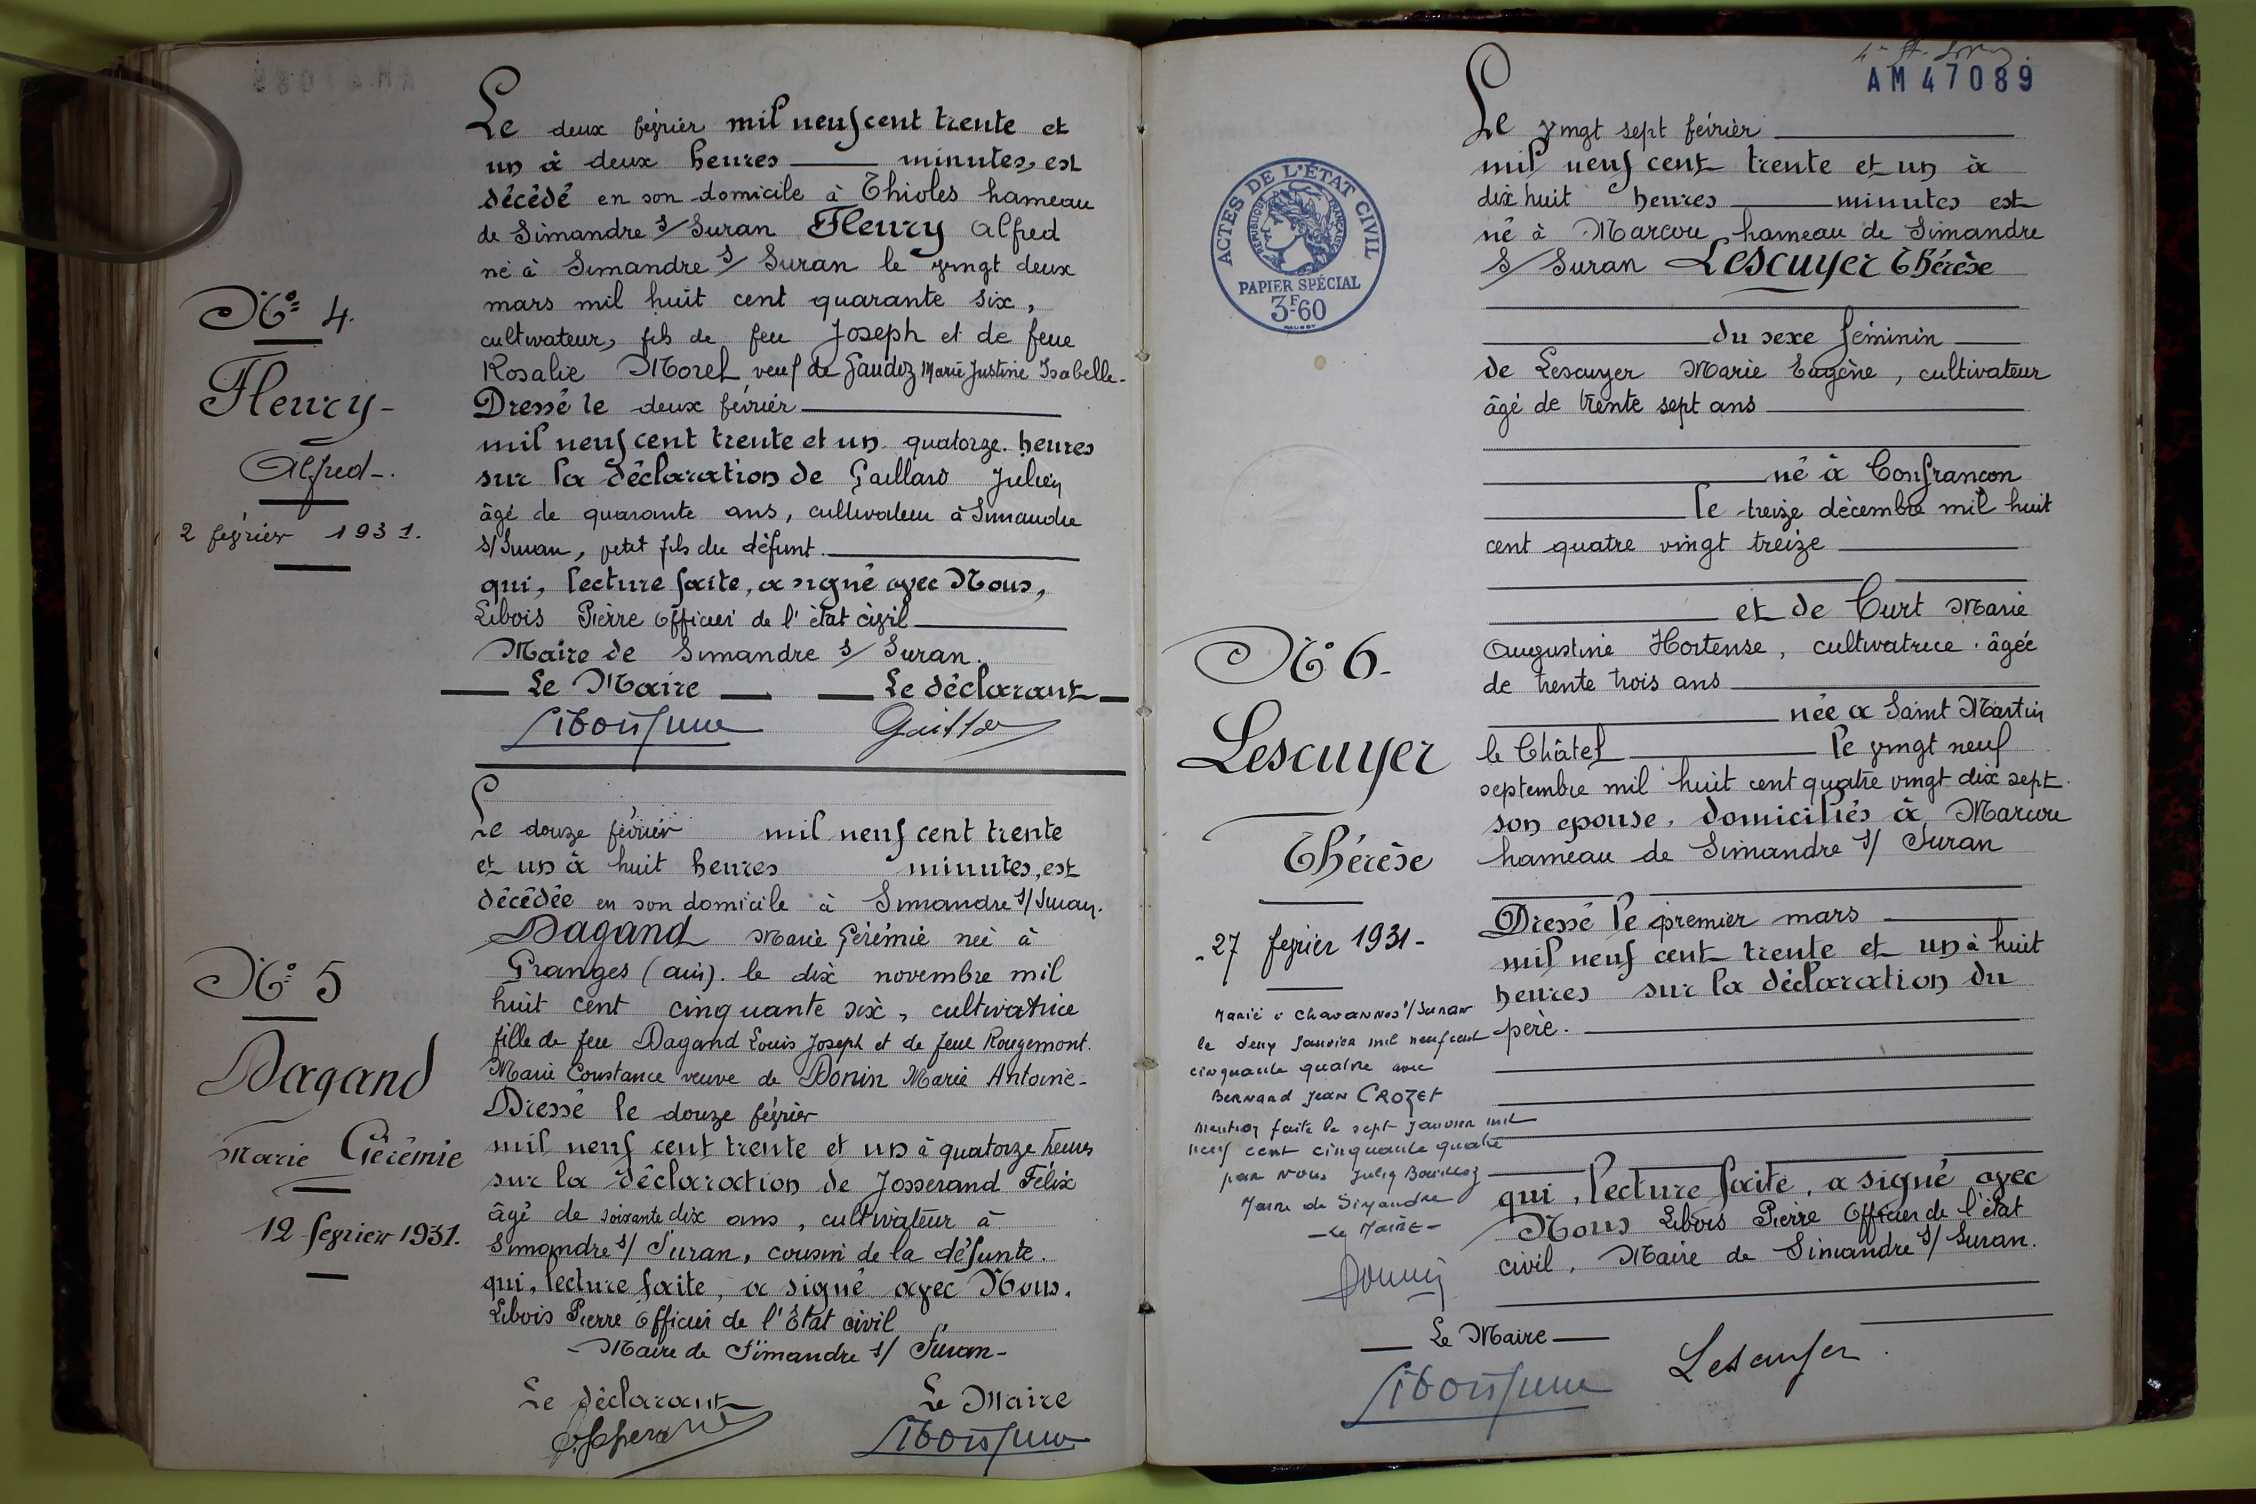 N° 4.
Fleury
Alfred
2 février 1931.
Le deux février mil neuf cent trente et
un à deux heures minutes, est
décédé en son domicile à Thioles hameau
de Simandre s/ Suran Fleury Alfred
né à Simandre s/ Suran le vingt deux
mars mil huit cent quarante six,
cultivateur, fils de feu Joseph et de feue
Rosalie Morel, veuf de Gaudez Marie Justine Isabelle
Dressé le deux février
mil neuf cent trente et un quatorze heures
sur la déclaration de Gaillard Julien
âgé de quarante ans, cultivateur à Simandre
s/Suran, petit fils du défunt.
qui, lecture faite, a signé avec Nous,
Libois Pierre Officier de l'état civil
Maire de Simandre s/ Suran.
Le Maire Le déclarant
N° 5
Dagand
Marie Gérémie
12 février 1931.
Le douze février mil neuf cent trente
et un à huit heures minutes, est
décédée en son domicile à Simandre s/Suran.
Dagand Marie Gérémie née à
Granges (ain). le dix novembre mil
huit cent cinquante six, cultivatrice
fille de feu Dagand Louis Joseph et de feue Rougemont.
Marie Constance veuve de Donin Marie Antoine
Dressé le douze février
mil neuf cent trente et un à quatorze heures
sur la déclaration de Josserand Félix
âgé de soixante dix ans, cultivateur à
Simandre s/ Suran, cousin de la défunte.
qui, lecture faite, a signé avec Nous.
Libois Pierre Officier de l'État civil
Maire de Simandre s/ Suran
Le déclarant Le Maire
AM 47089
ACTES DE L'ÉTAT CIVIL
RÉPUBLIQUE FRANÇAISE
PAPIER SPÉCIAL
3F60
N° 6
Lescuyer
Thérèse
27 février 1931
Marié à Chavannes s/Suran
le deux Janvier mil neuf cent
cinquante quatre avec
Bernard Jean CROZET
Mention faite le sept Janvier mil
neuf cent cinquante quatre
par Nous
Maire de Simandre
Le Maire
Le vingt sept février
mil neuf cent trente et un à
dix huit heures minutes est
né à Marcou hameau de Simandre
s/ Suran Lescuyer Thérèse
du sexe féminin
de Lescuyer Marie Eugène, cultivateur
âgé de trente sept ans
né à Confrançon
le treize décembre mil huit
cent quatre vingt treize
et de Curt Marie
Augustine Hortense, cultivatrice âgée
de trente trois ans
née à Saint Martin
le Châtel le vingt neuf
septembre mil huit cent quatre vingt dix sept.
son épouse, domiciliés à Marcou
hameau de Simandre s/ Suran
Dressé le premier mars
mil neuf cent trente et un à huit
heures sur la déclaration du
père.
qui, lecture faite, a signé avec
Nous Libois Pierre Officier de l'état
civil, Maire de Simandre s/ Suran.
Le Maire
Lescuyer